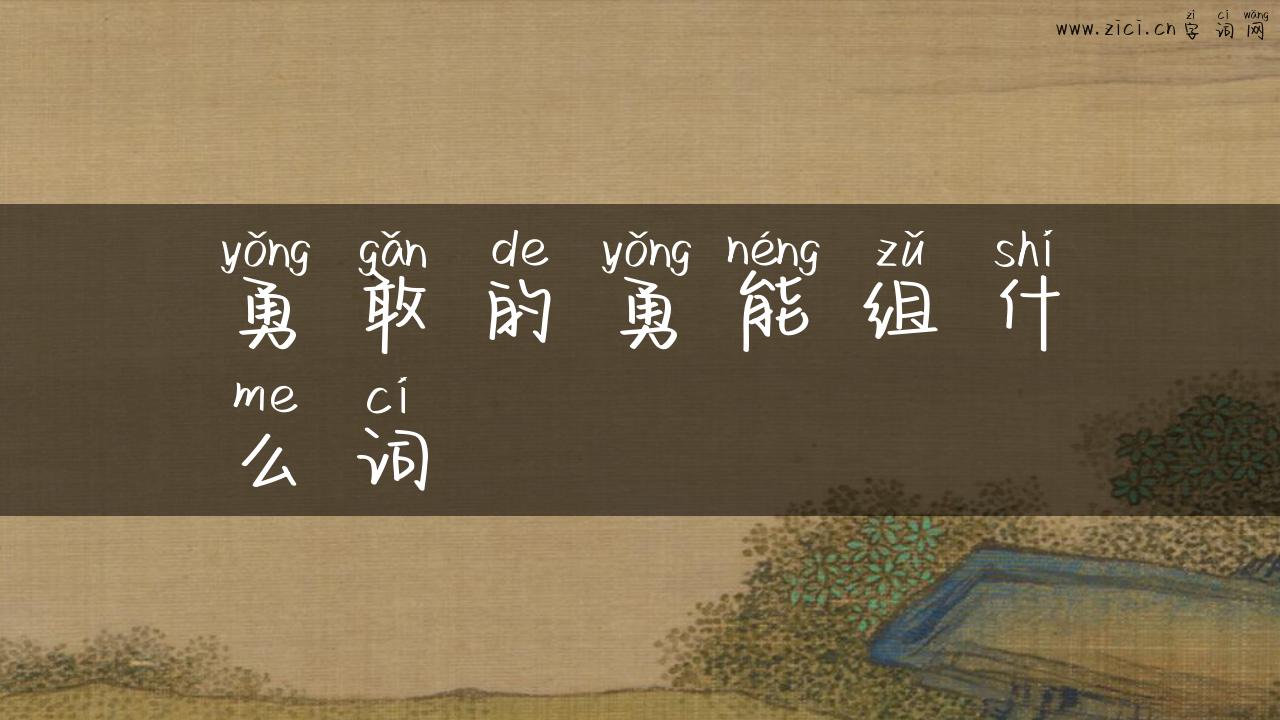 zì cí wǎng
www.zici.cn 字词网
yǒng gǎn de yǒng néng zǔ shí
勇敢的勇能组什
me cí
么词